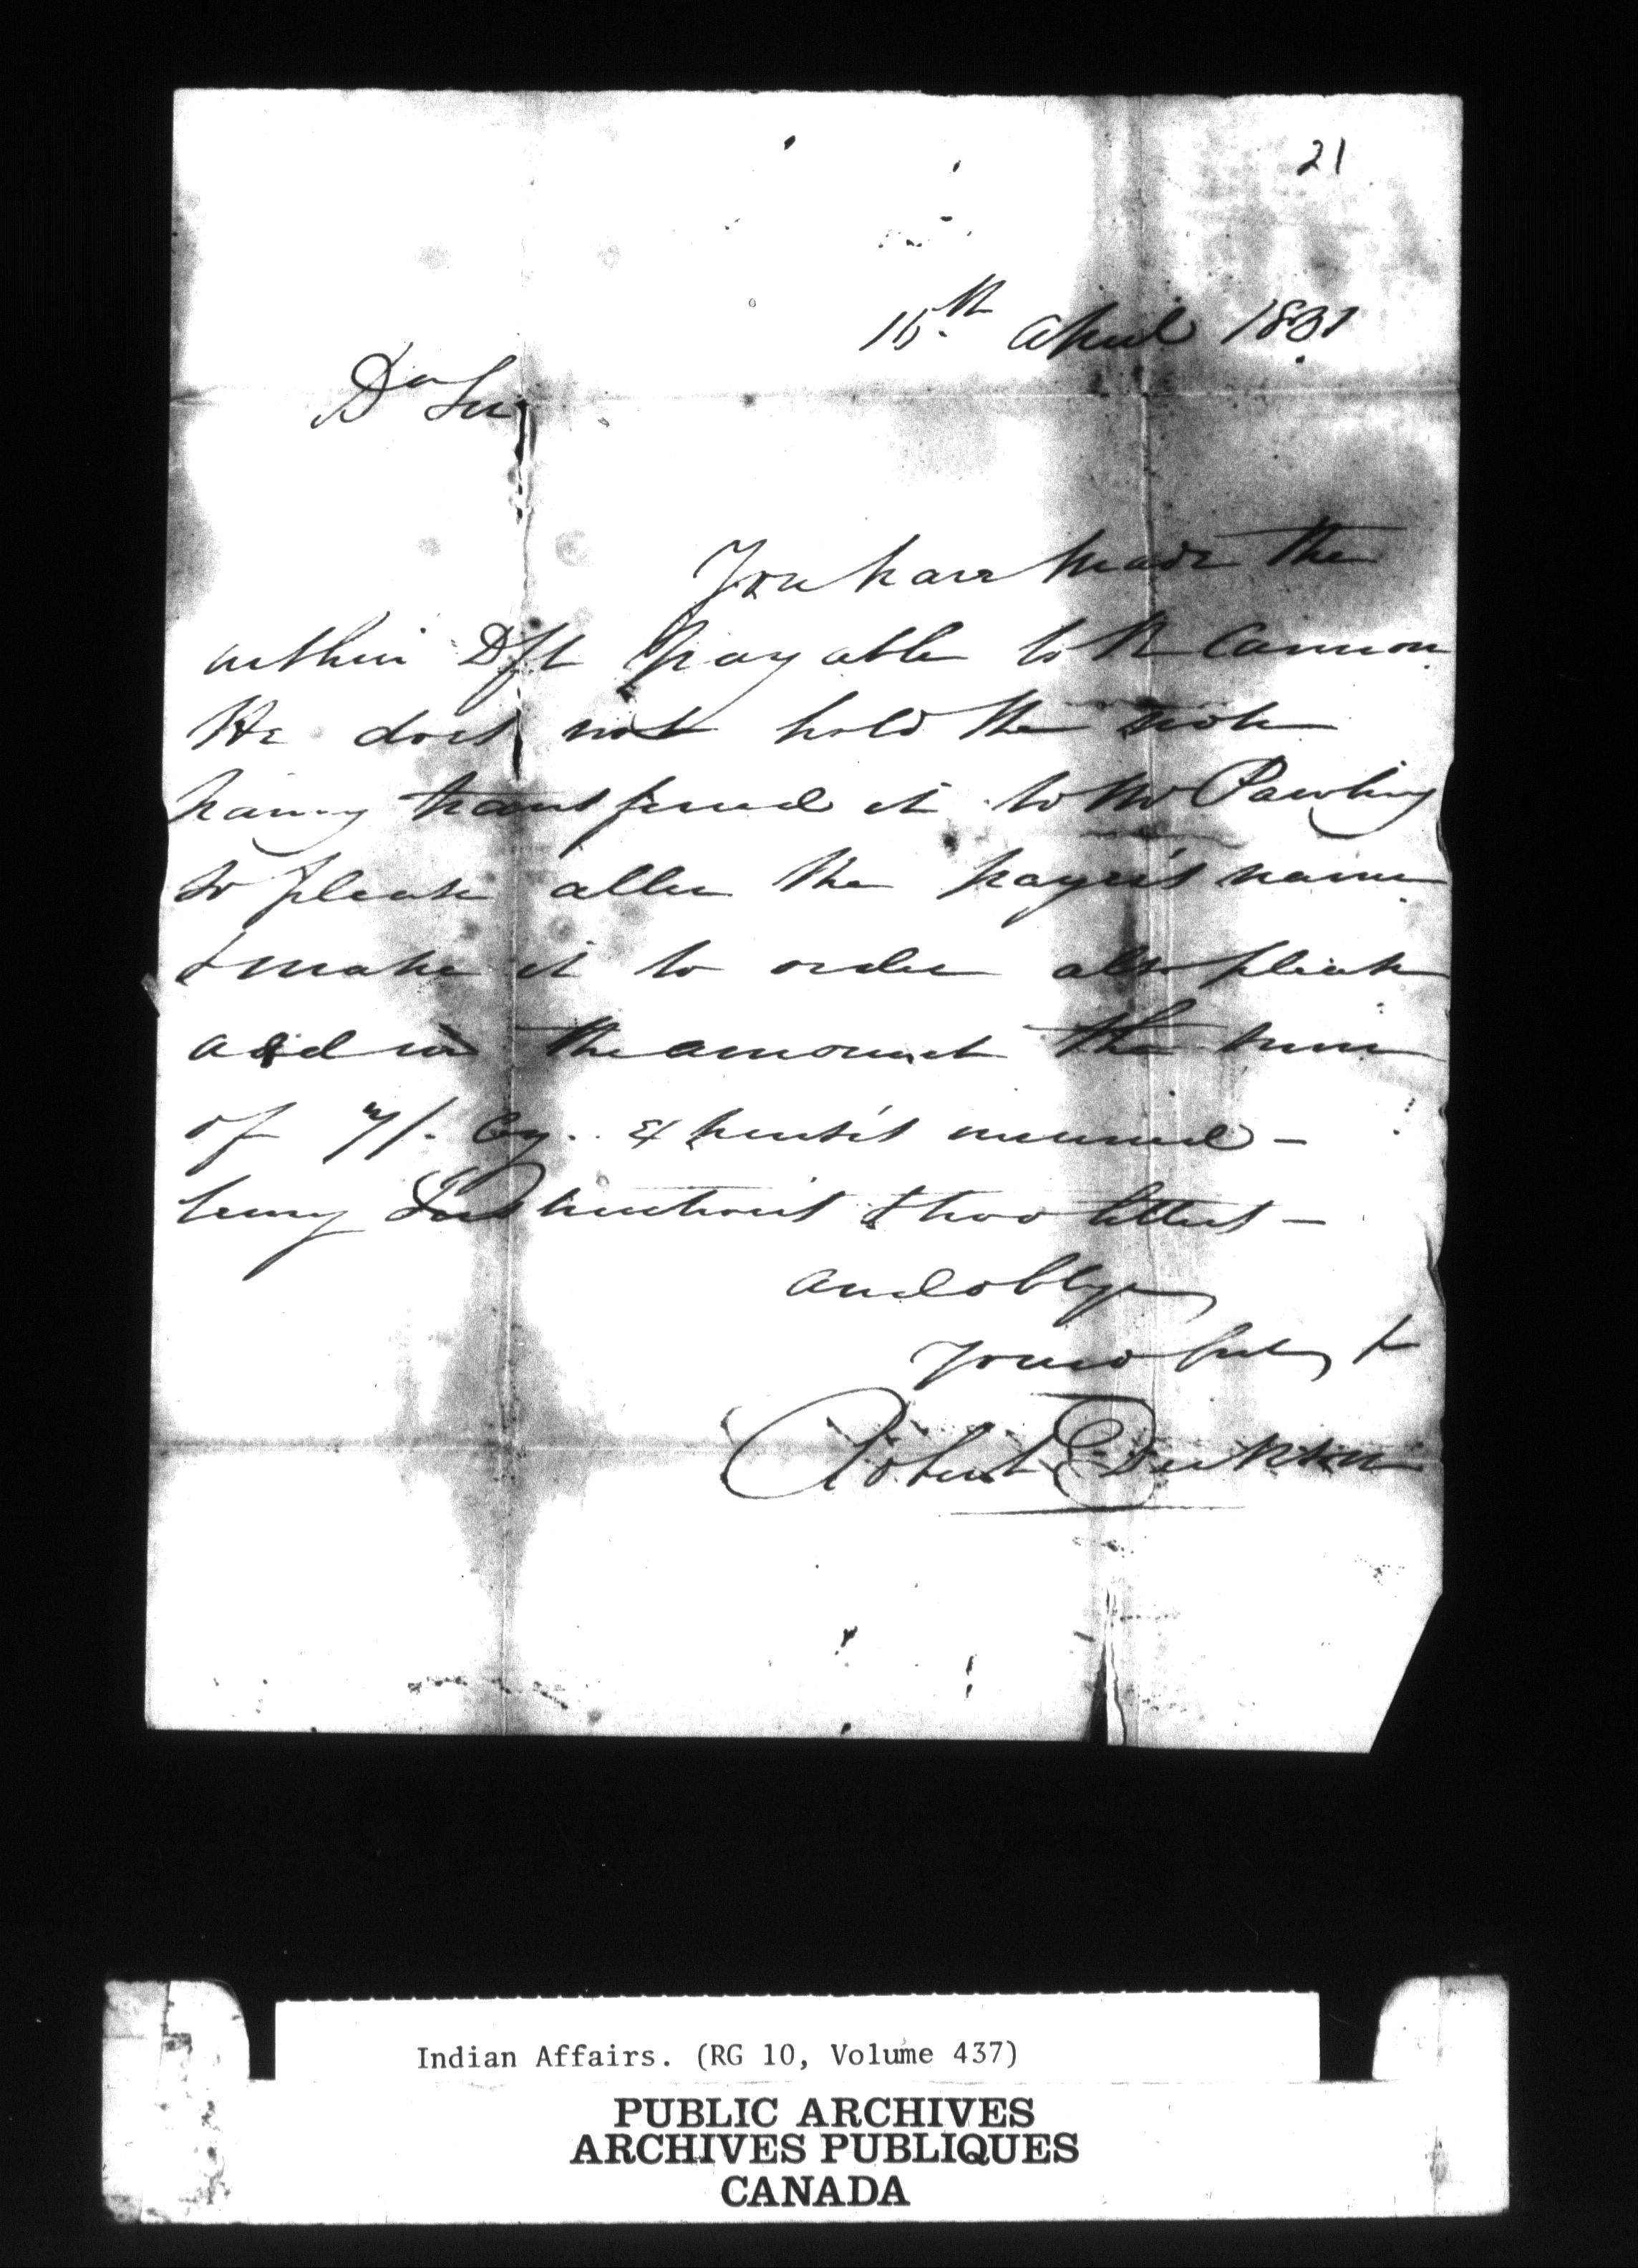 21
15th April 1831
Dr Sir
You have made the
within Dft payable to Mr Cannon
He does not hold the note
having transferred it to Mr Pawling
so please alter the payee's name
& make it to order also please
add in the amount the sum
of 7/. Cy. expenses incurred -
being Instructions & two letters -
and oblige
Yours truly
Robert Dickson
Indian Affairs. (RG 10, Volume 437)
PUBLIC ARCHIVES
ARCHIVES PUBLIQUES
CANADA